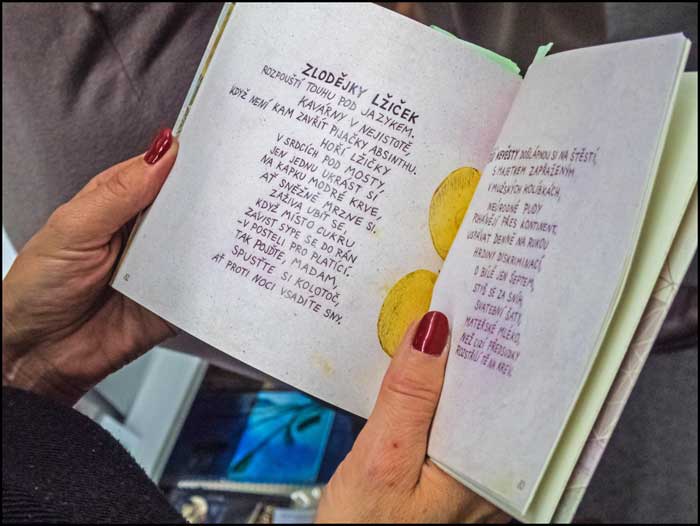 ZLODĚJKY LŽIČEK
ROZPOUŠTÍ TOUHU POD JAZYKEM,
KAVÁRNY V NEJISTOTĚ,
KDYŽ NENÍ KAM ZAVŘÍT PIJAČKY ABSINTHU.
HOŘÍ LŽIČKY
V SRDCÍCH POD MOSTY,
JEN JEDNU UKRÁST SI
NA KAPKU MODRÉ KRVE,
AŤ SNĚŽNĚ MRZNE SI.
ZAŽIVA UBÍT SE,
KDYŽ MÍSTO CUKRU
ZÁVIST SYPE SE DO RÁN
V POSTELI PRO PLATÍCÍ.
TAK POJĎTE, MADAM,
SPUSŤTE SI KOLOTOČ,
AŤ PROTI NOCI VSADÍTE SNY.
NEVĚSTY DOŠLÁPNOU SI NA ŠTĚSTÍ,
S MAJETKEM ZAPŘAŽENÝM
V MUŽSKÝCH HOLIČKÁCH,
NEÚRODNÉ PLODY
POHÁNĚJÍ PŘES KONTINENT,
USPÁVAT DENNĚ NA RUKOU
HRDINY DISKRIMINACÍ,
O BÍLÉ JEN ŠEPTEM,
STYĎ SE ZA SNÍH,
SVATEBNÍ ŠATY,
MATEŘSKÉ MLÉKO,
NEŽ CIZÍ PŘEDSUDKY
ROZSTŘÍLÍ TĚ NA KREV.